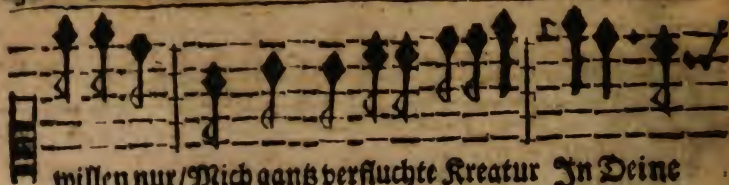 willen nur/Mich gantz verfluchte Kreatur In Deine